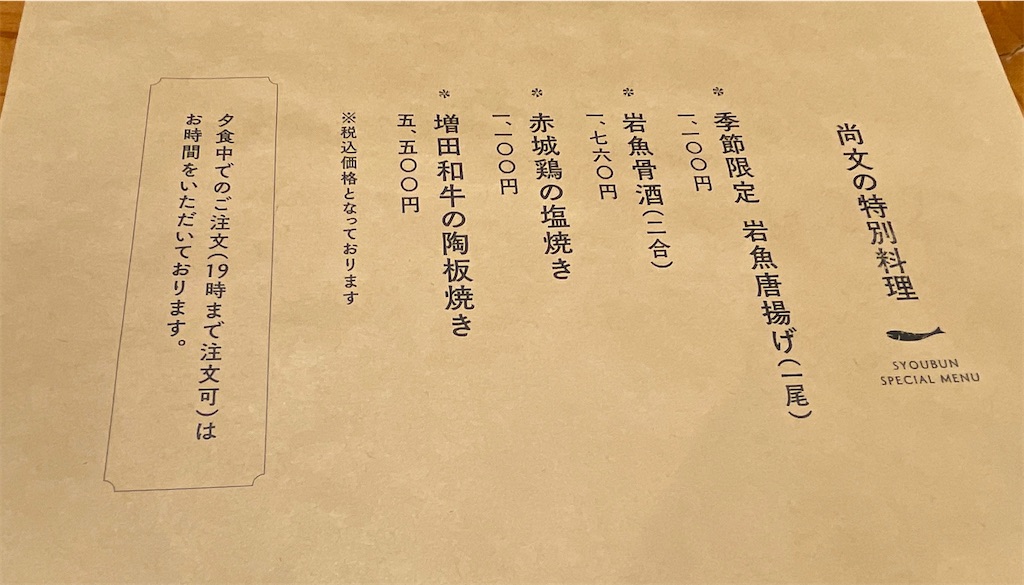 尚文の特別料理
SYOUBUN
SPECIAL MENU
* 季節限定 岩魚唐揚げ(一尾)
一、一〇〇円
* 岩魚骨酒(二合)
一、七六〇円
* 赤城鶏の塩焼き
一、一〇〇円
* 増田和牛の陶板焼き
五、五〇〇円
※税込価格となっております
夕食中でのご注文(19時まで注文可)は
お時間をいただいております。